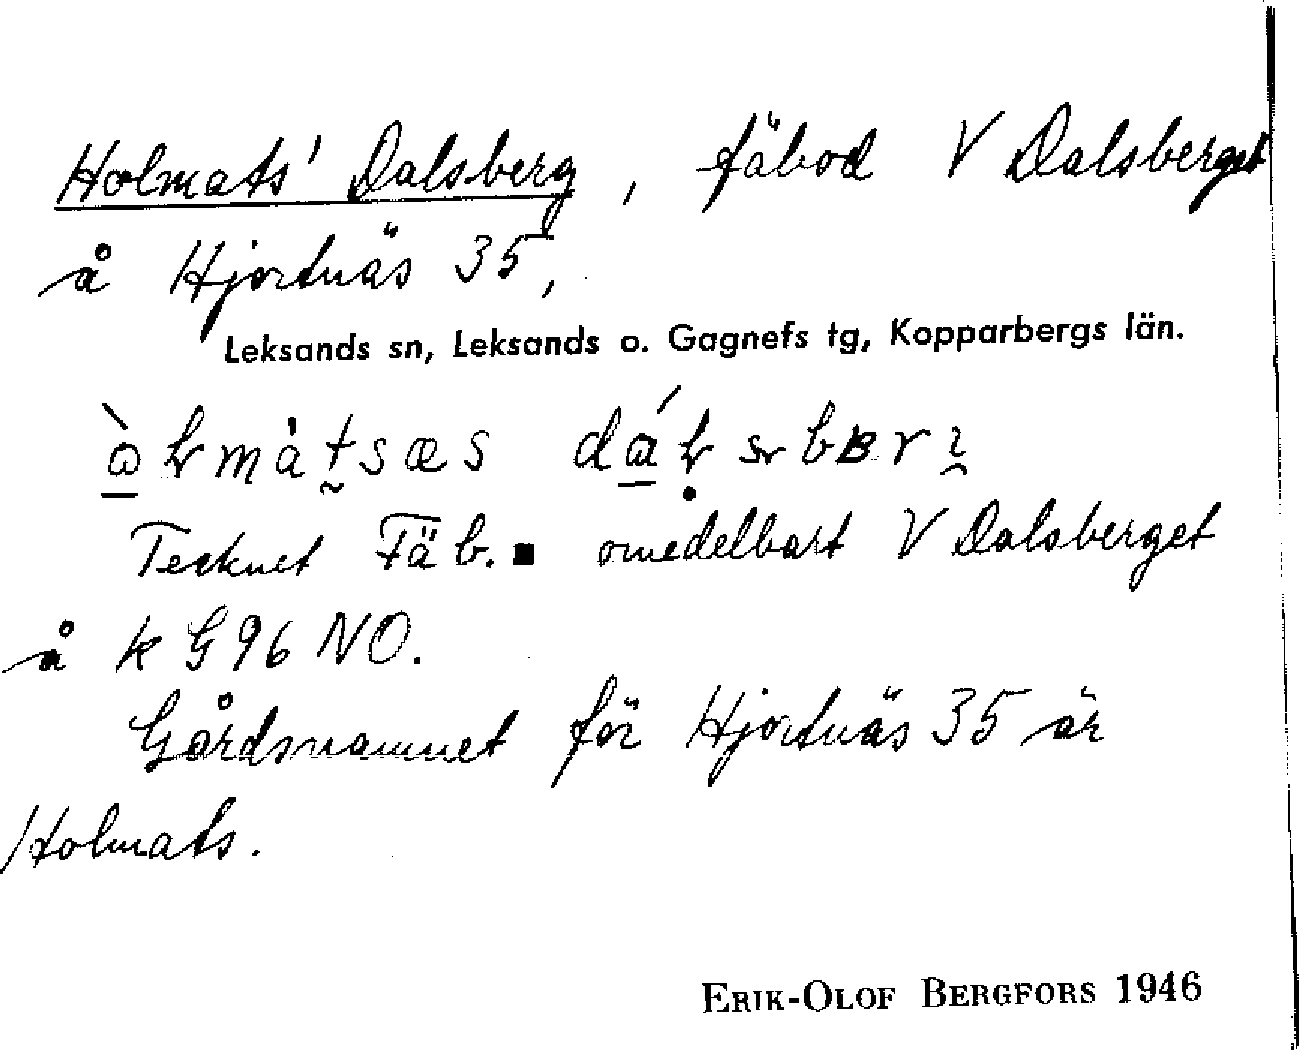 Holmats' Dalsberg, fäbod V Dalsberget
å Hjortnäs 35,
Leksands sn, Leksands o. Gagnefs tg, Kopparbergs län.
Tecknet Fäb. ▪ omedelbart V Dalsberget
å k G96 NO.
Gårdsnamnet för Hjortnäs 35 är
Holmats.
ERIK-OLOF BERGFORS 1946